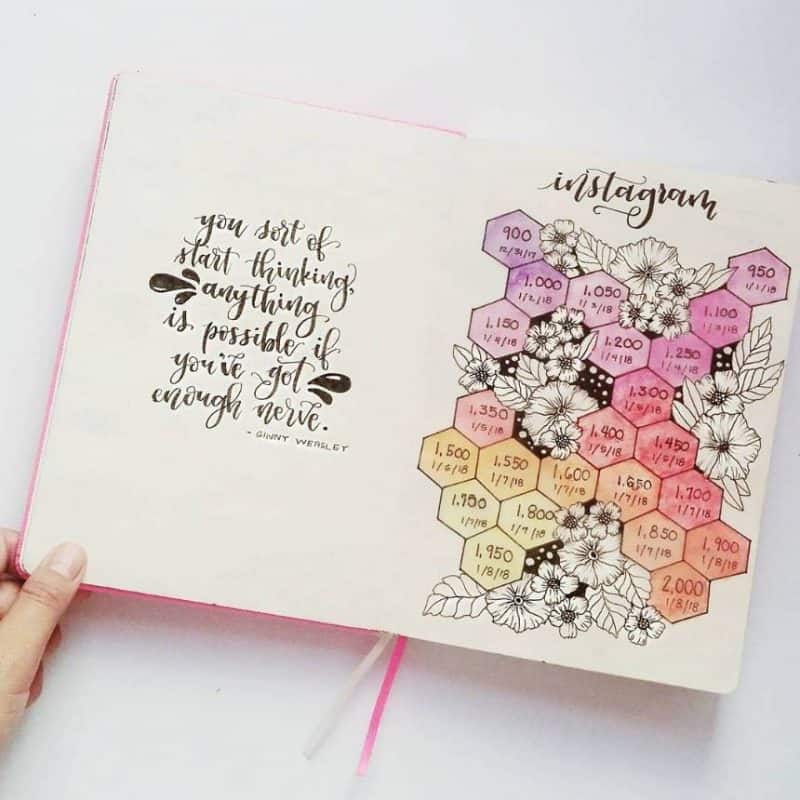 you sort of
start thinking,
anything
is possible if
you've got
enough nerve.
- GINNY WEASLEY
instagram
900
12/31/17
950
1/1/18
1,000
1/2/18
1,050
1/3/18
1,100
1/3/18
1,150
1/4/18
1,200
1/4/18
1,250
1/4/18
1,300
1/5/18
1,350
1/5/18
1,400
1/5/18
1,450
1/5/18
1,500
1/6/18
1,550
1/7/18
1,600
1/7/18
1,650
1/7/18
1,700
1/7/18
1,750
1/7/18
1,800
1/7/18
1,850
1/7/18
1,900
1/8/18
1,950
1/8/18
2,000
1/8/18